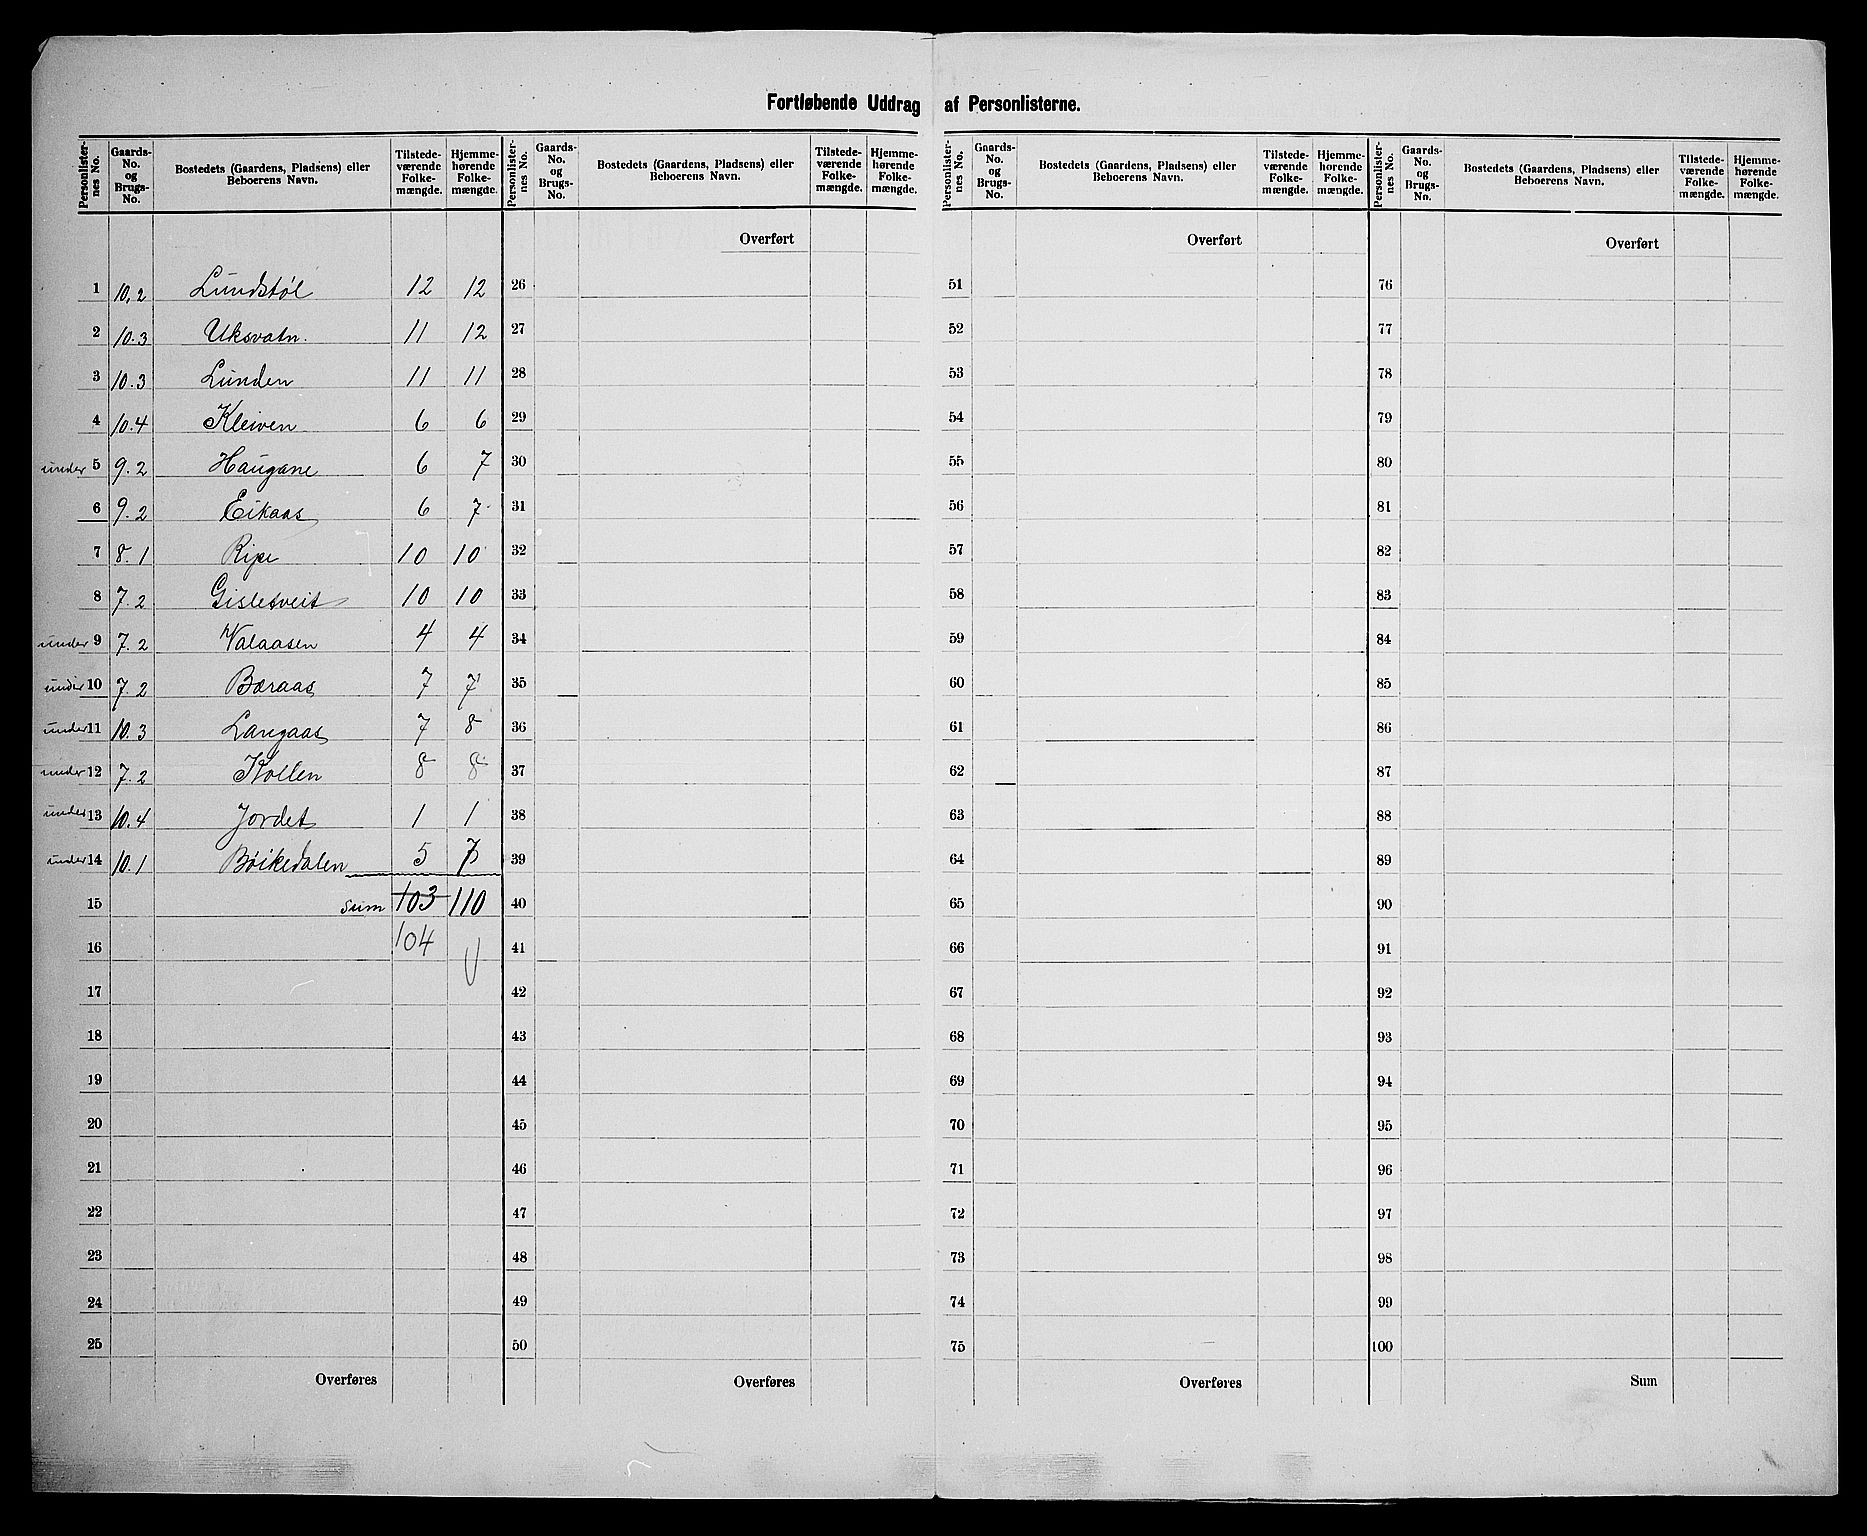 Fortløbende Uddrag af Personlisterne.
Personlister-nes No. Gaards-No. og Brugs-No. Bostedets (Gaardens, Pladsens) eller Beboerens Navn. Tilstede-værende Folke-mængde. Hjemme-hørende Folke-mængde. Personlister-nes No. Gaards-No. og Brugs-No. Bostedets (Gaardens, Pladsens) eller Beboerens Navn. Tilstede-værende Folke-mængde. Hjemme-hørende Folke-mængde. Personlister-nes No. Gaards-No. og Brugs-No. Bostedets (Gaardens, Pladsens) eller Beboerens Navn. Tilstede-værende Folke-mængde. Hjemme-hørende Folke-mængde. Personlister-nes No. Gaards-No. og Brugs-No. Bostedets (Gaardens, Pladsens) eller Beboerens Navn. Tilstede-værende Folke-mængde. Hjemme-hørende Folke-mængde.
Overført Overført Overført
1 10,2 Lundstøl 12 12 26 51 76
2 10.3 Uksvatn. 11 12 27 52 77
3 10.3 Lunden 11 11 28 53 78
4 10.4 Kleiven 6 6 29 54 79
under 5 9.2 Haugane 6 7 30 55 80
6 9.2 Eikaas 6 7 31 56 81
7 8.1 Ripe 10 10 32 57 82
8 7.2 Gisletveit 10 10 33 58 83
under 9 7.2 Valaasen 4 4 34 59 84
under 10 7.2 Bæraas 7 7 35 60 85
under 11 10.3 Langaas 7 8 36 61 86
under 12 7.2 Kollen 8 8 37 62 87
under 13 10.4 Jordet 1 1 38 63 88
under 14 10.1 Bøikedalen 5 7 39 64 89
15 sum 103 110 40 65 90
16 104 41 66 91
17 42 67 92
18 43 68 93
19 44 69 94
20 45 70 95
21 46 71 96
22 47 72 97
23 48 73 98
24 49 74 99
25 50 75 100
Overføres Overføres Overføres Sum